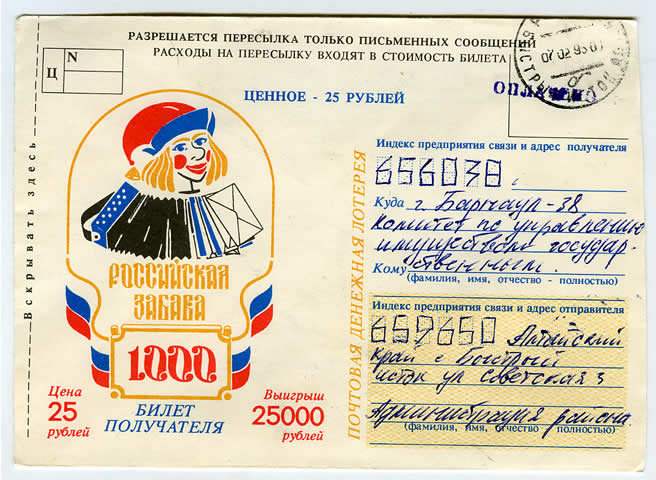 РАЗРЕШАЕТСЯ ПЕРЕСЫЛКА ТОЛЬКО ПИСЬМЕННЫХ СООБЩЕНИЙ
РАСХОДЫ НА ПЕРЕСЫЛКУ ВХОДЯТ В СТОИМОСТЬ БИЛЕТА
N
Ц
ЦЕННОЕ - 25 РУБЛЕЙ
ОПЛАЧЕНО
07 02 95
Вскрывать здесь
РОССИЙСКАЯ
ЗАБАВА
1000
Цена
25
рублей
БИЛЕТ
ПОЛУЧАТЕЛЯ
Выигрыш
25000
рублей
ПОЧТОВАЯ ДЕНЕЖНАЯ ЛОТЕРЕЯ
Индекс предприятия связи и адрес получателя
656038
Куда г. Барнаул-38
Комитет по управлению
имуществом государ-
Кому ственным.
(фамилия, имя, отчество - полностью)
Индекс предприятия связи и адрес отправителя
659650 Алтайский
край с Быстрый
исток ул Советская 3
Администрация района
(фамилия, имя, отчество полностью)